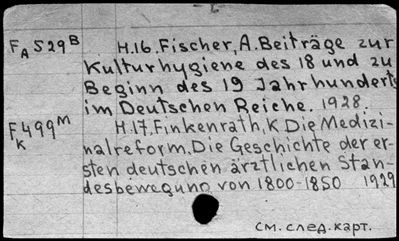 F_A 529^B H.16. Fischer, A. Beiträge zur
Kulturhygiene des 18 und zu
Beginn des 19 Jahrhunderts
im Deutschen Reiche. 1928.
F_K 499^M H.17. Finkenrath, K Die Medizi-
nalreform. Die Geschichte der er-
sten deutschen ärztlichen Stan-
desbewegung von 1800-1850 1929
см. след. карт.